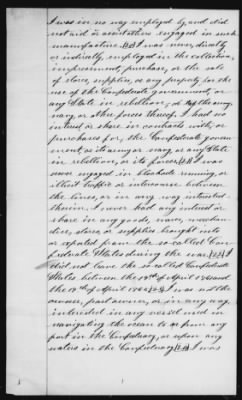 I was in no way employed by, and did
not aid or assist others engaged in such
manufacture. I was never, directly
or indirectly, employed in the collection,
impressment, purchase, or the sale
of stores, supplies, or any property for the
use of the Confederate government, or
any State in rebellion, or the army,
navy, or other forces thereof. I had no
interest or share in contracts with, or
purchases for, the Confederate govern
ment, or its army or navy, or any State
in rebellion, or its forces. I was
never engaged in blockade running, or
illicit traffic or intercourse between
the lines, or in any way interested
therein. I never had any interest or
share in any goods, wares, merchan
dise, stores, or supplies brought into
or exported from the so-called Con
federate States during the war. I
did not leave the so-called Confederate
States between the 19th of April 1861 and
the 19th of April 1865. I was not the
owner, part owner, or in any way
interested in any vessel used in
navigating the ocean to or from any
port in the Confederacy, or upon any
waters in the Confederacy. I was